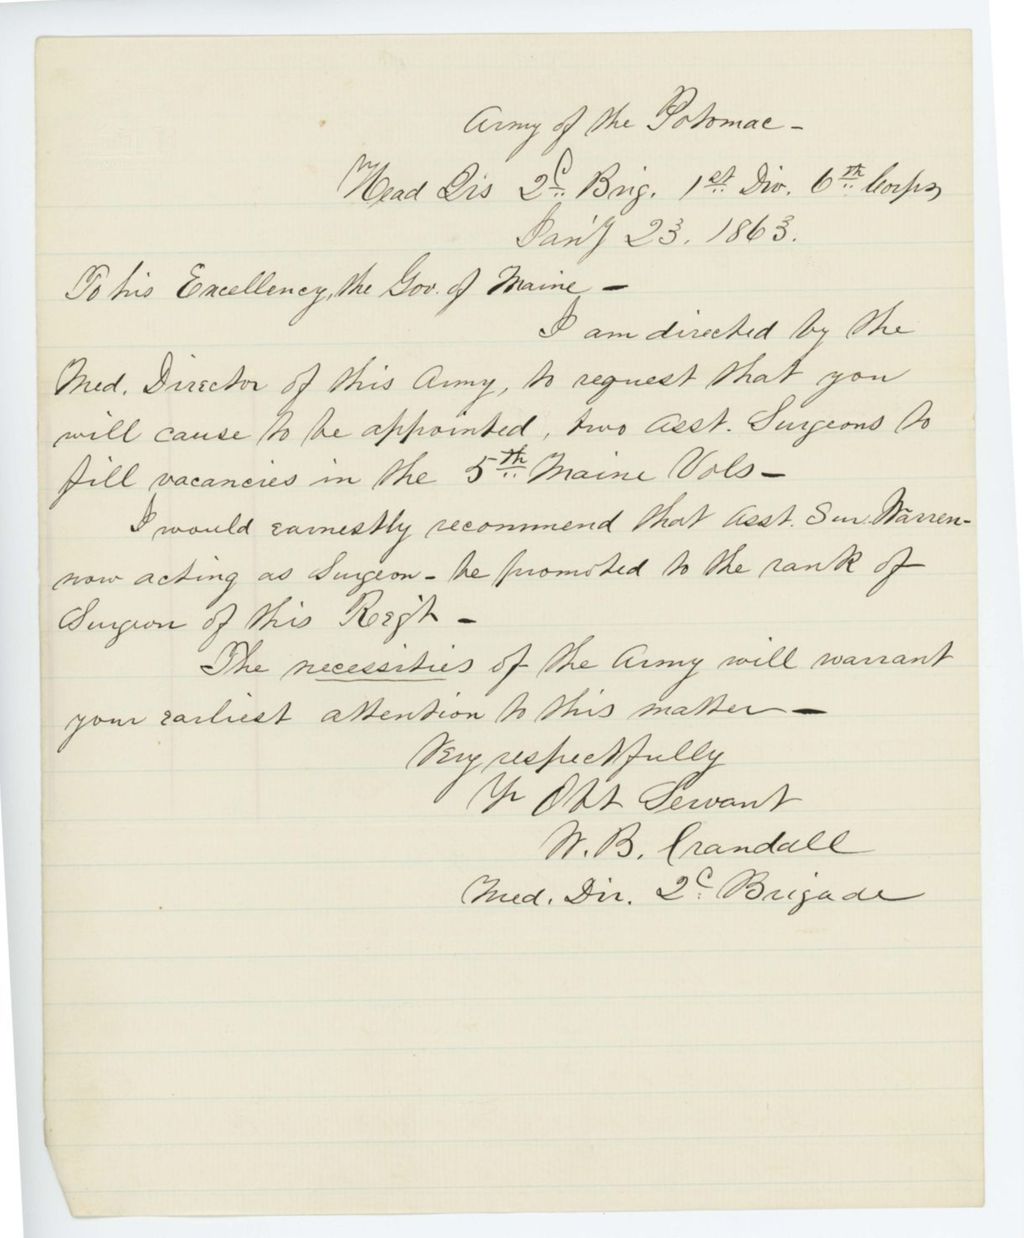 Army of the Potomac -
Head Qrs 2d Brig. 1st Div. 6th Corps,
Jan'y 23. 1863.
To his Excellency, the Gov. of Maine -
I am directed by the
Med. Director of this Army, to request that you
will cause to be appointed, two Asst. Surgeons to
fill vacancies in the 5th Maine Vols -
I would earnestly recommend that Asst. Sur. Warren -
now acting as Surgeon - be promoted to the rank of
Surgeon of this Reg't -
The necessities of the Army will warrant
your earliest attention to this matter -
Very respectfully
Yr Obt Servant
W. B. Crandall
Med. Dir. 2d Brigade